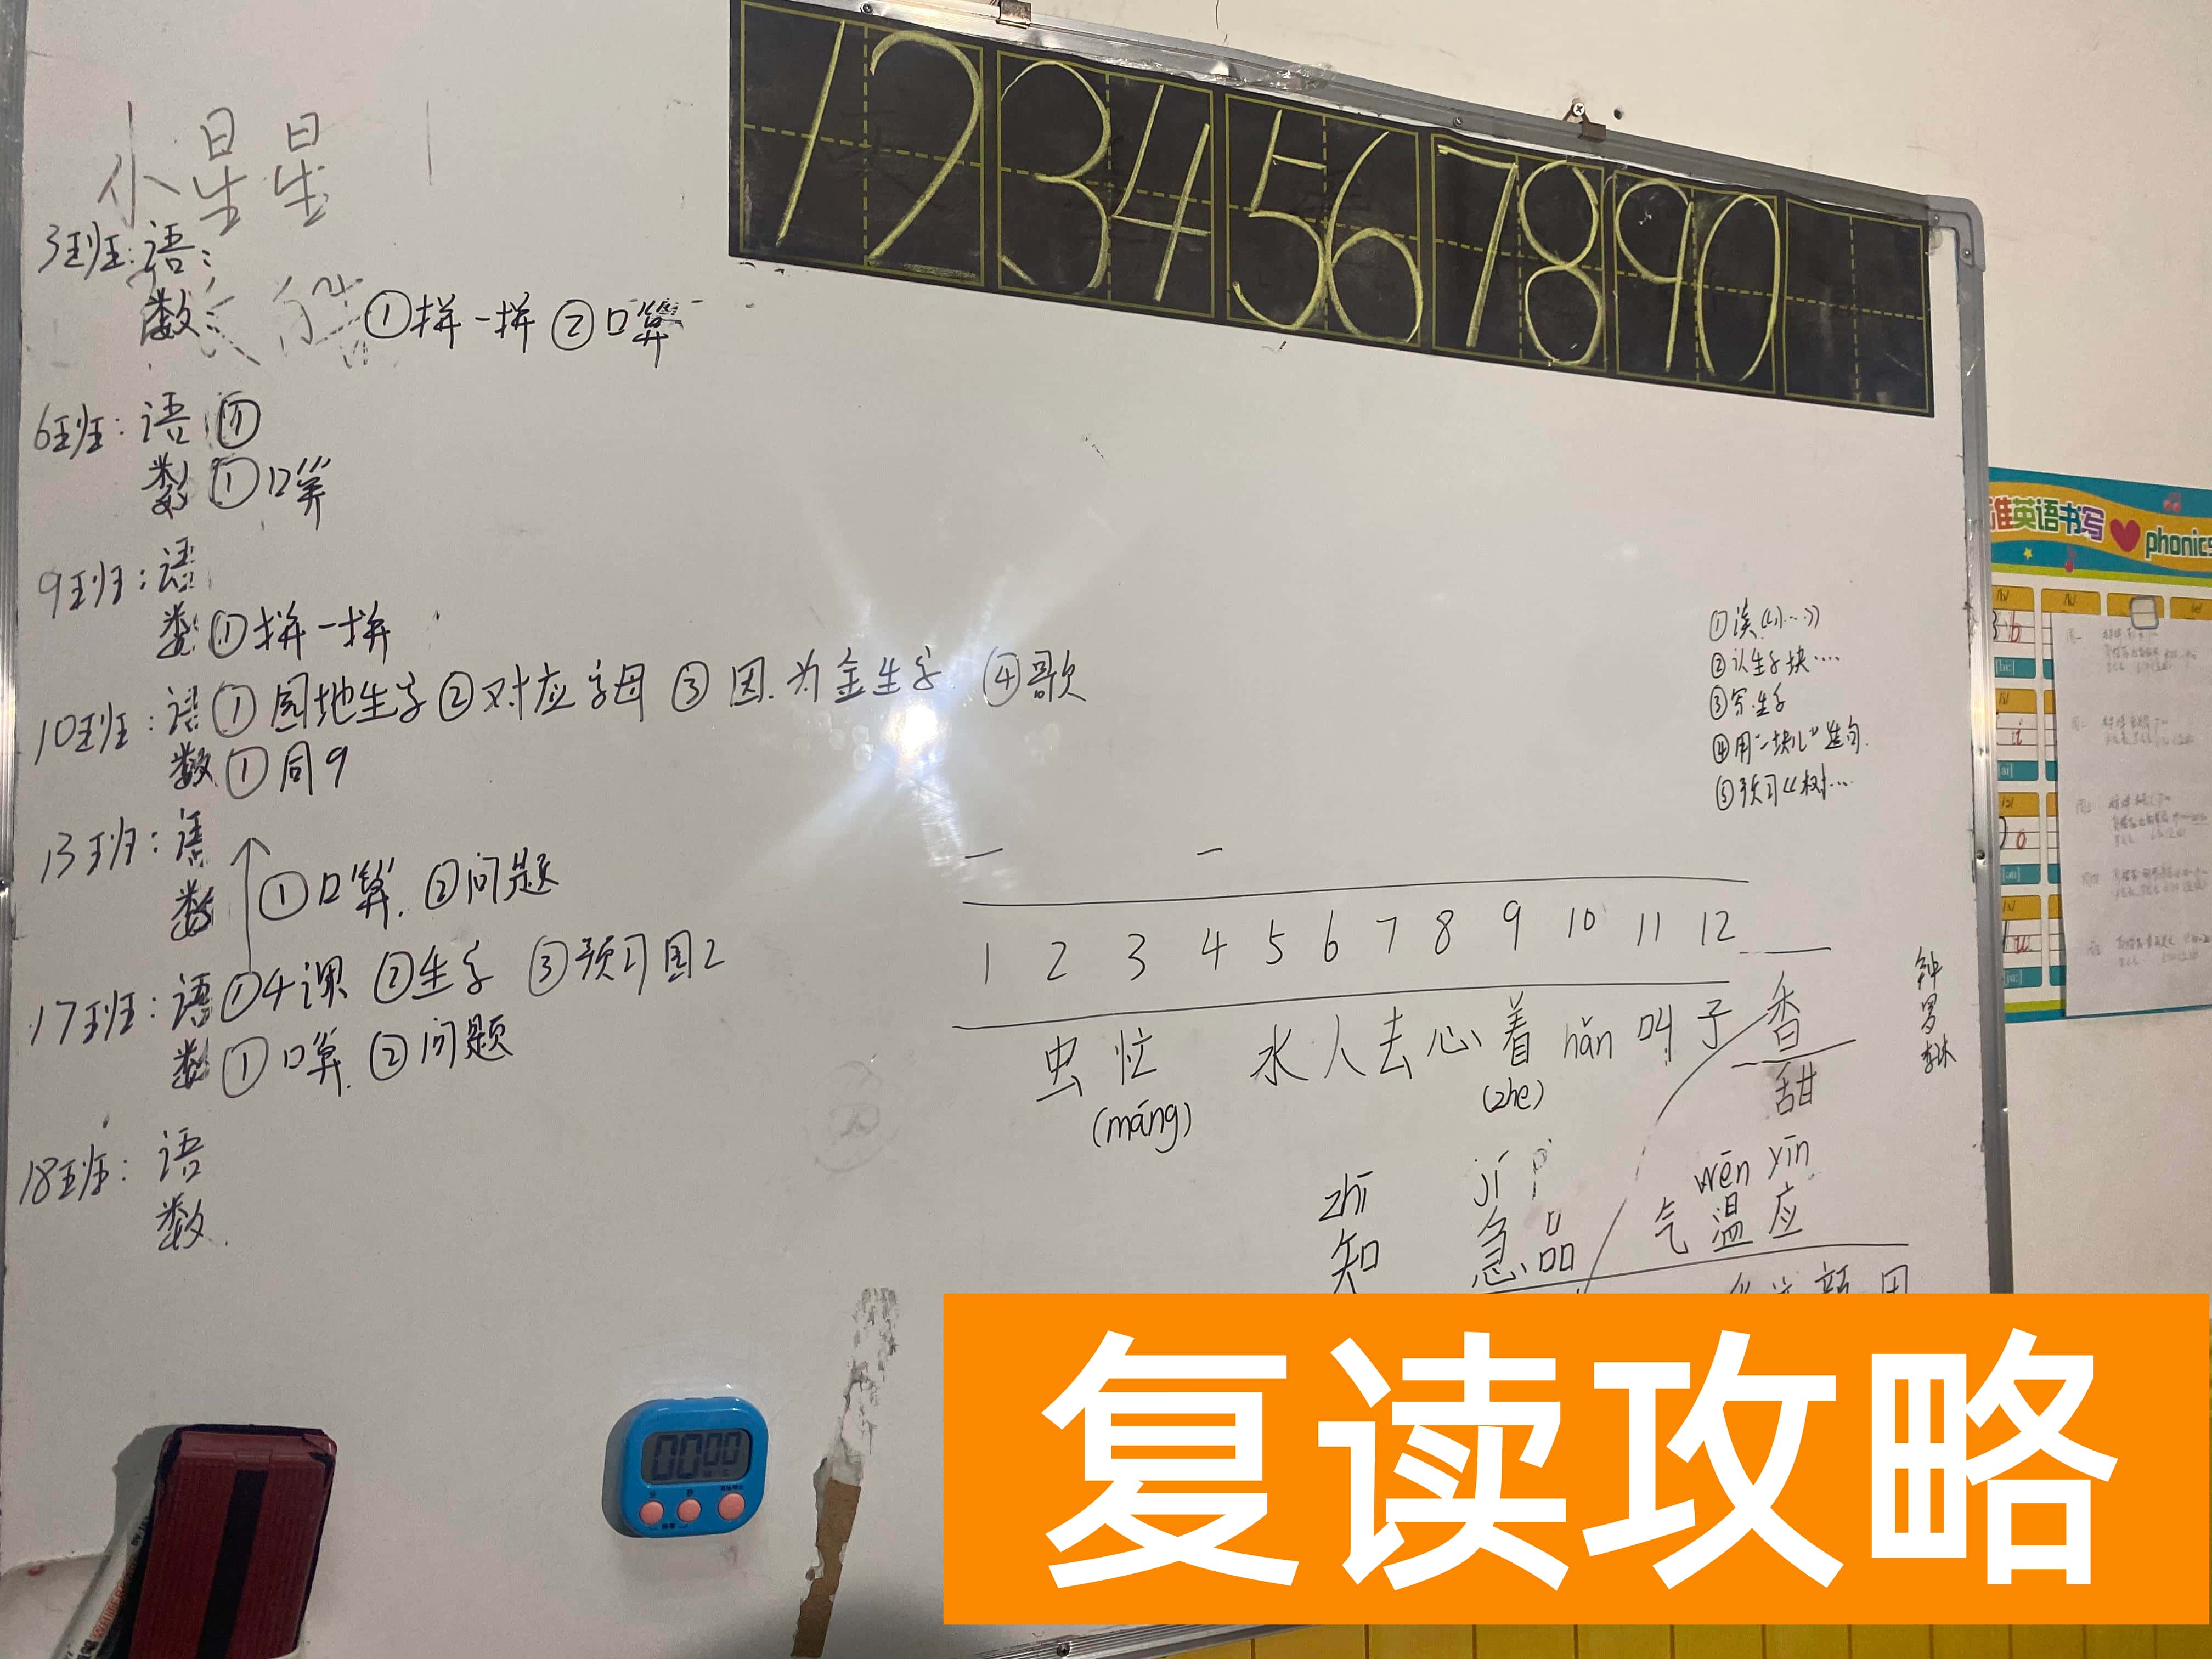 1234567890
小星星
3班:语:
数 ①拼一拼 ②口算
6班:语 ①
数 ①口算
9班:语
数 ①拼一拼
10班:语 ①园地生字 ②对应字母 ③因.为金生字 ④歌
数 ①同9
13班:语
数 ①口算. ②问题
17班:语 ①4课 ②生字 ③预习园2
数 ①口算. ②问题
18班:语
数.
①读《小…》
②认生字块….
③写生字
④用"一块儿"造句.
⑤预习《树…
1 2 3 4 5 6 7 8 9 10 11 12
虫 忙 水 人 去 心 着 hǎn 叫 子 香
(máng) (zhe) 甜
zhī jí wēn yīn
知 急 品 气 温 应
钟
罗
准英语书写 phonics
00 00
复读攻略